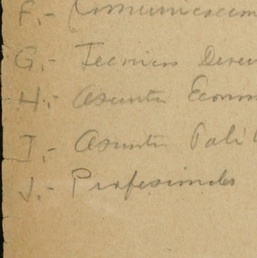 F.- Comunicacion
G.- Tecnicos
H.- Asuntos Econom
I.- Asuntos Polit
J.- Profesionales